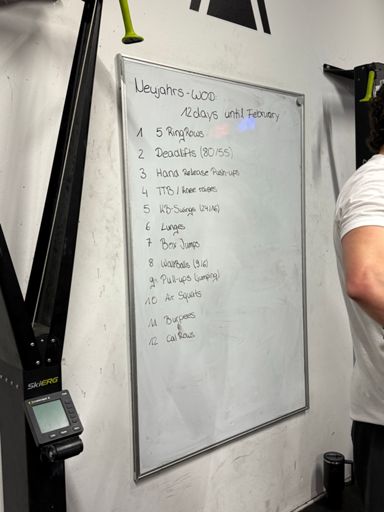 Neujahrs-WOD:
12 days until February
1 5 Ring Rows
2 Deadlifts (80/55)
3 Hand Release Push-ups
4 TTB / knee raises
5 KB-Swings (24/16)
6 Lunges
7 Box Jumps
8 Wallballs (9/6)
9 Pull-ups (jumping)
10 Air Squats
11 Burpees
12 Cal Rows
SkiERG